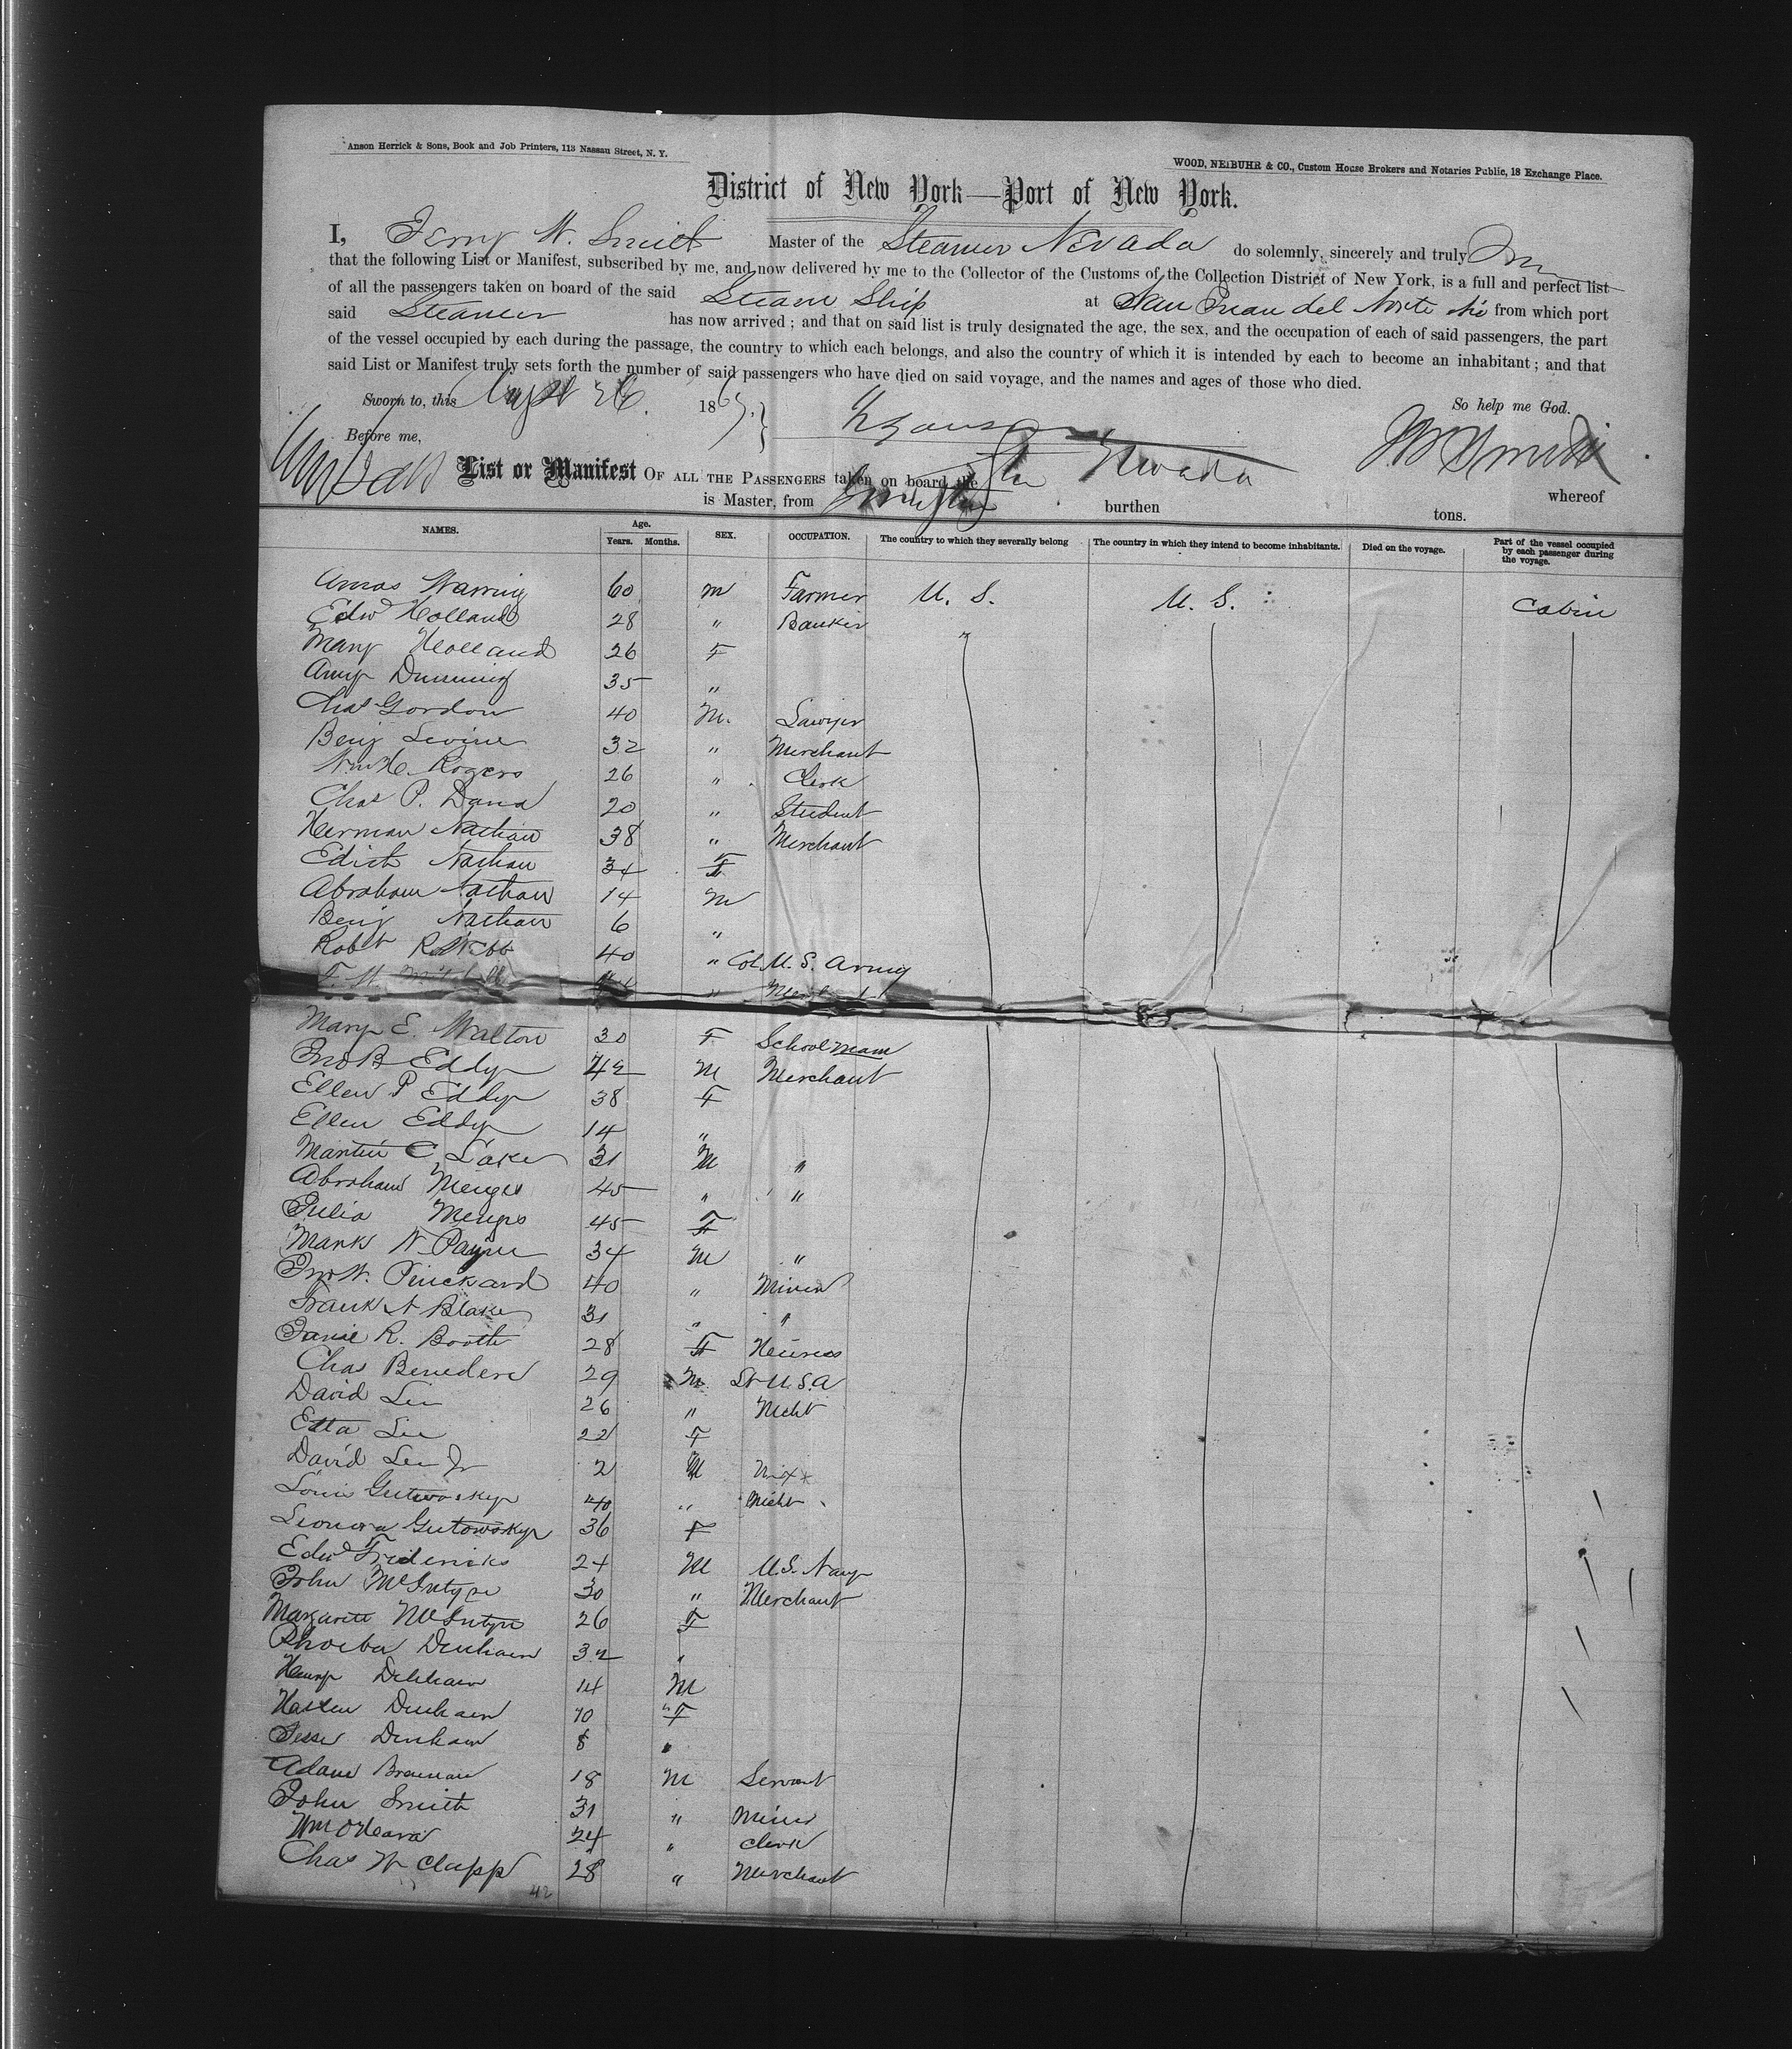 Anson Herrick & Sons, Book and Job Printers, 113 Nassau Street, N. Y.
WOOD, NEIBUHR & CO., Custom House Brokers and Notaries Public, 18 Exchange Place.
District of New York—Port of New York.
I, W. Smith Master of the Steamer Nevada do solemnly, sincerely and truly
that the following List or Manifest, subscribed by me, and now delivered by me to the Collector of the Customs of the Collection District of New York, is a full and perfect list
of all the passengers taken on board of the said Steam Ship at San Juan del Norte from which port
said Steamer has now arrived ; and that on said list is truly designated the age, the sex, and the occupation of each of said passengers, the part
of the vessel occupied by each during the passage, the country to which each belongs, and also the country of which it is intended by each to become an inhabitant ; and that
said List or Manifest truly sets forth the number of said passengers who have died on said voyage, and the names and ages of those who died.
Sworn to, this 26 1867. So help me God.
Before me, Smith
List or Manifest OF ALL THE PASSENGERS taken on board the Str Nevada whereof
is Master, from burthen tons.
NAMES. Age. Years. Months. SEX. OCCUPATION. The country to which they severally belong The country in which they intend to become inhabitants. Died on the voyage. Part of the vessel occupied by each passenger during the voyage.
Amos Warring 60 M Farmer U. S. U. S. Cabin
Edwd Holland 28 " Banker "
Mary Holland 26 F
Amy Dunning 35 "
Chas Gordon 40 M. Lawyer
Benj Levine 32 " Merchant
Wm H. Rogers 26 " Clerk
Chas P. Dana 20 " Student
Herman Nathan 38 " Merchant
Edith Nathan 34 F
Abraham Nathan 14 M
Benj Nathan 6 "
Robt R Webb 40 " Col. U. S. Army
F. W. "
Mary E. Walton 30 F School mam
Jno B Eddy 42 M Merchant
Ellen P Eddy 38 F
Ellen Eddy 14 "
Martin C. Lake 31 M "
Abraham Menges 45 " "
Julia Menges 45 F
Marks N Payne 34 M "
Jno W. Pinckard 40 " Miner
Frank A Blake 31 " "
Janie R. Booth 28 F Heiress
Chas 29 M Lt U.S.A
David Lee 26 " Mcht
Etta Lee 22 F
David Lee Jr 2 M
Louis Gutowsky 40 " Mcht
Leonora Gutowsky 36 F
Edwd Fredericks 24 M U.S. Navy
John McIntyre 30 " Merchant
Margarett McIntyre 26 F
Phoeba Denham 32 "
Henry Denham 14 M
Denham 10 " F
Jesse Denham 8 "
Adam 18 M Servant
John Smith 31 " Miner
Wm O'Hara 24 " Clerk
Chas W Clapp 28 " Merchant
42